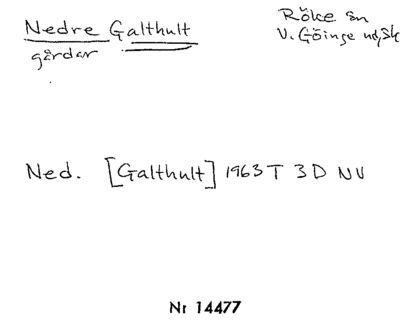 Nedre Galthult
gårdar
Röke sn
V. Göinge hd, Sk
Ned. [Galthult] 1963 T 3 D NV
Nr 14477